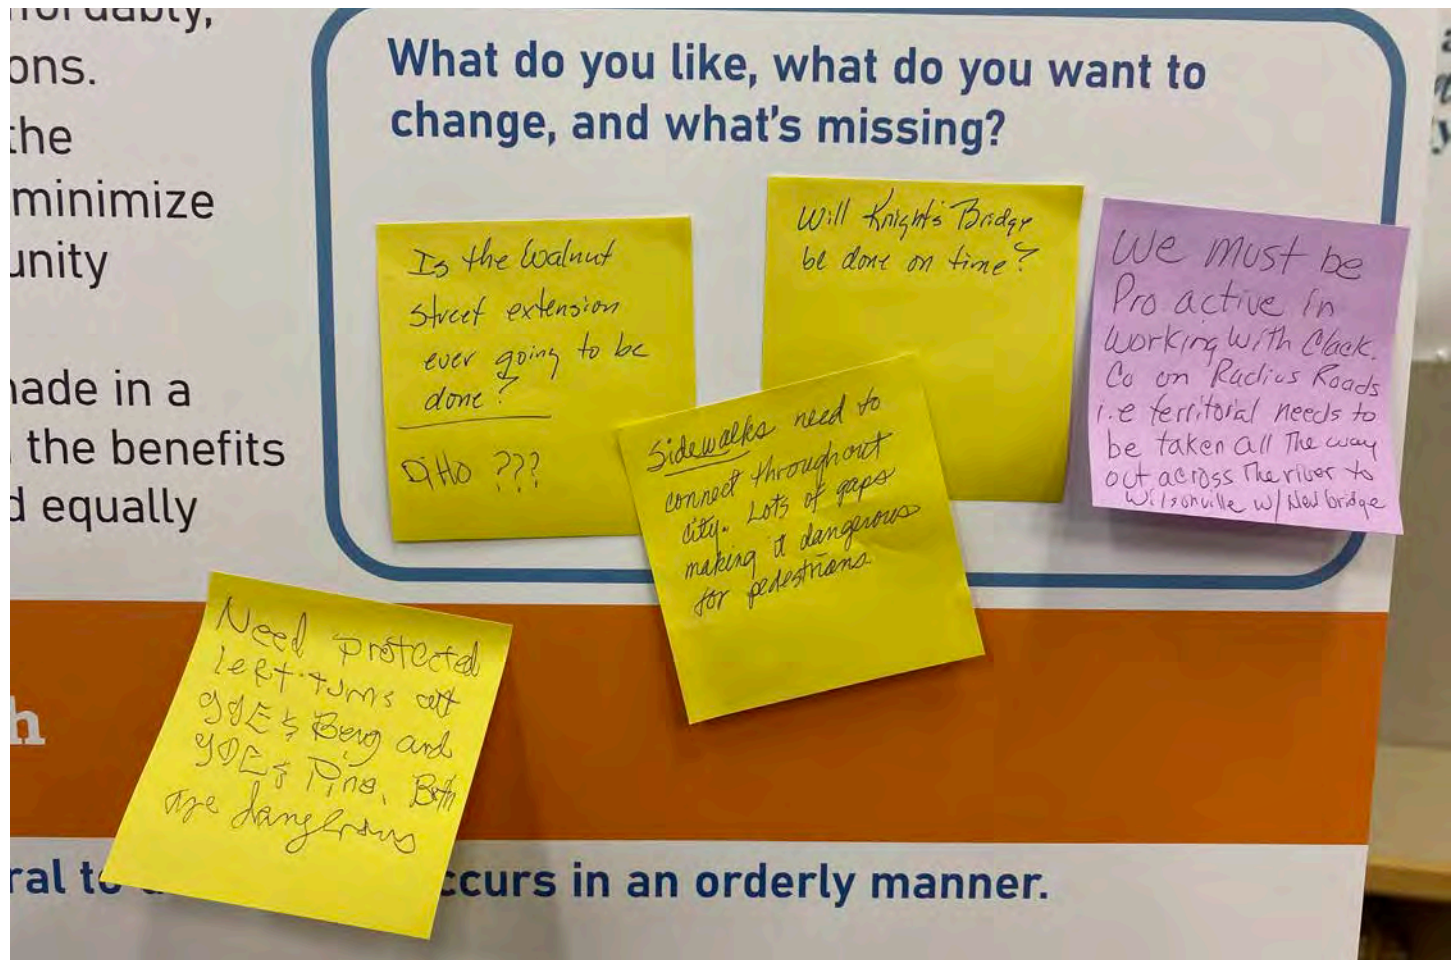 ons.
the
minimize
unity
ade in a
the benefits
d equally
What do you like, what do you want to
change, and what's missing?
Is the Walnut
street extension
ever going to be
done?
Ditto ???
Will Knight's Bridge
be done on time?
We must be
Pro active in
working with Clack.
Co on Radius Roads
i.e territorial needs to
be taken all The way
out across The river to
Wilsonville w/ New bridge
Sidewalks need to
connect throughout
city. Lots of gaps
making it dangerous
for pedestrians.
Need protected
left turns at
99E & Berg and
99E & Pine. Both
are dangerous
h
ral to
ccurs in an orderly manner.